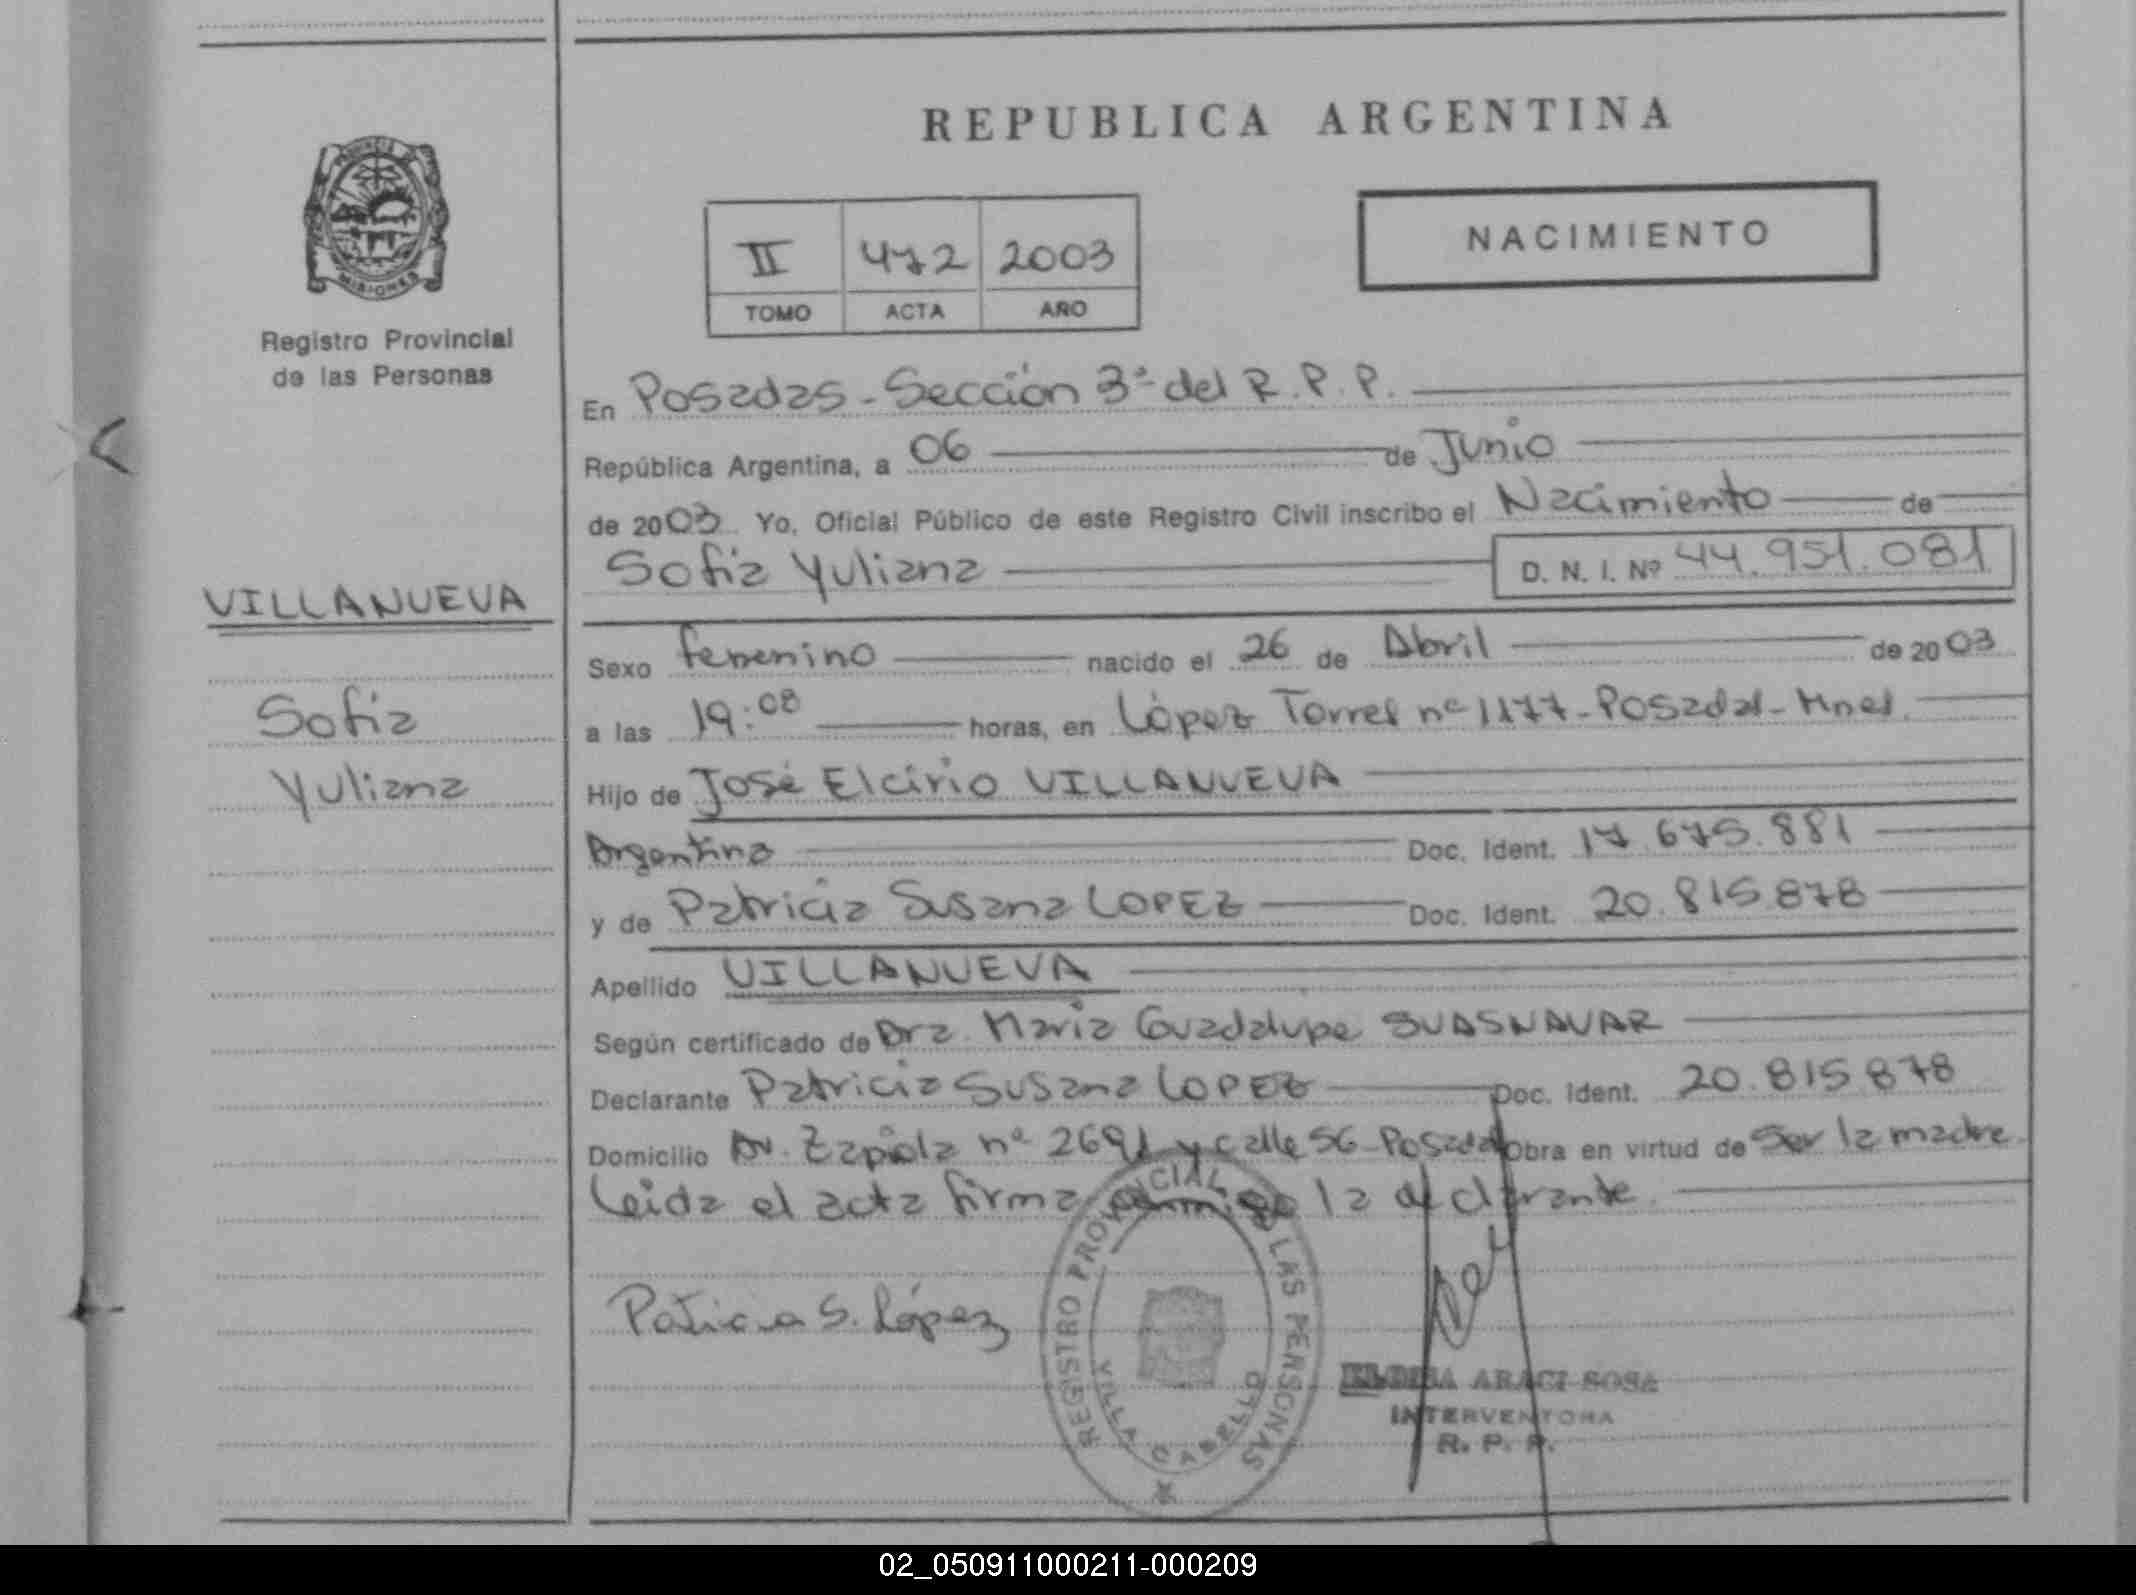 REPUBLICA ARGENTINA
PROVINCIA DE
MISIONES
Registro Provincial
de las Personas
II 472 2003
TOMO ACTA AÑO
NACIMIENTO
En Posadas - Sección 3ª del R.P.P.
República Argentina, a 06 de Junio
de 2003 Yo, Oficial Público de este Registro Civil inscribo el Nacimiento de
Sofia Yuliana D. N. I. Nº 44.951.081
VILLANUEVA
Sofia
Yuliana
Sexo femenino nacido el 26 de Abril de 2003
a las 19:08 horas, en López Torres nº 1177 - Posadas - Mnes.
Hijo de José Elcirio VILLANUEVA
Argentina Doc. Ident. 17.675.881
y de Patricia Susana LOPEZ Doc. Ident. 20.815.878
Apellido VILLANUEVA
Según certificado de Dra. Maria Guadalupe SUASNAVAR
Declarante Patricia Susana LOPEZ Doc. Ident. 20.815.878
Domicilio Av. Zapiola nº 2691 y calle 56 - Posadas Obra en virtud de Ser la madre
Leida el acta firma conmigo la declarante.
Patricia S. López
REGISTRO PROVINCIAL DE LAS PERSONAS
VILLA CABELLO
ARACI SOSA
INTERVENTORA
R. P. P.
02_050911000211-000209